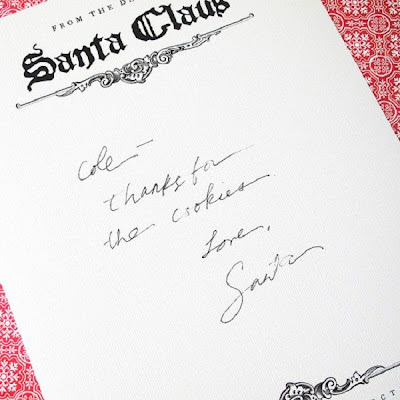 FROM THE
Santa Claus
Cole—
thanks for
the cookies.
Love,
Santa